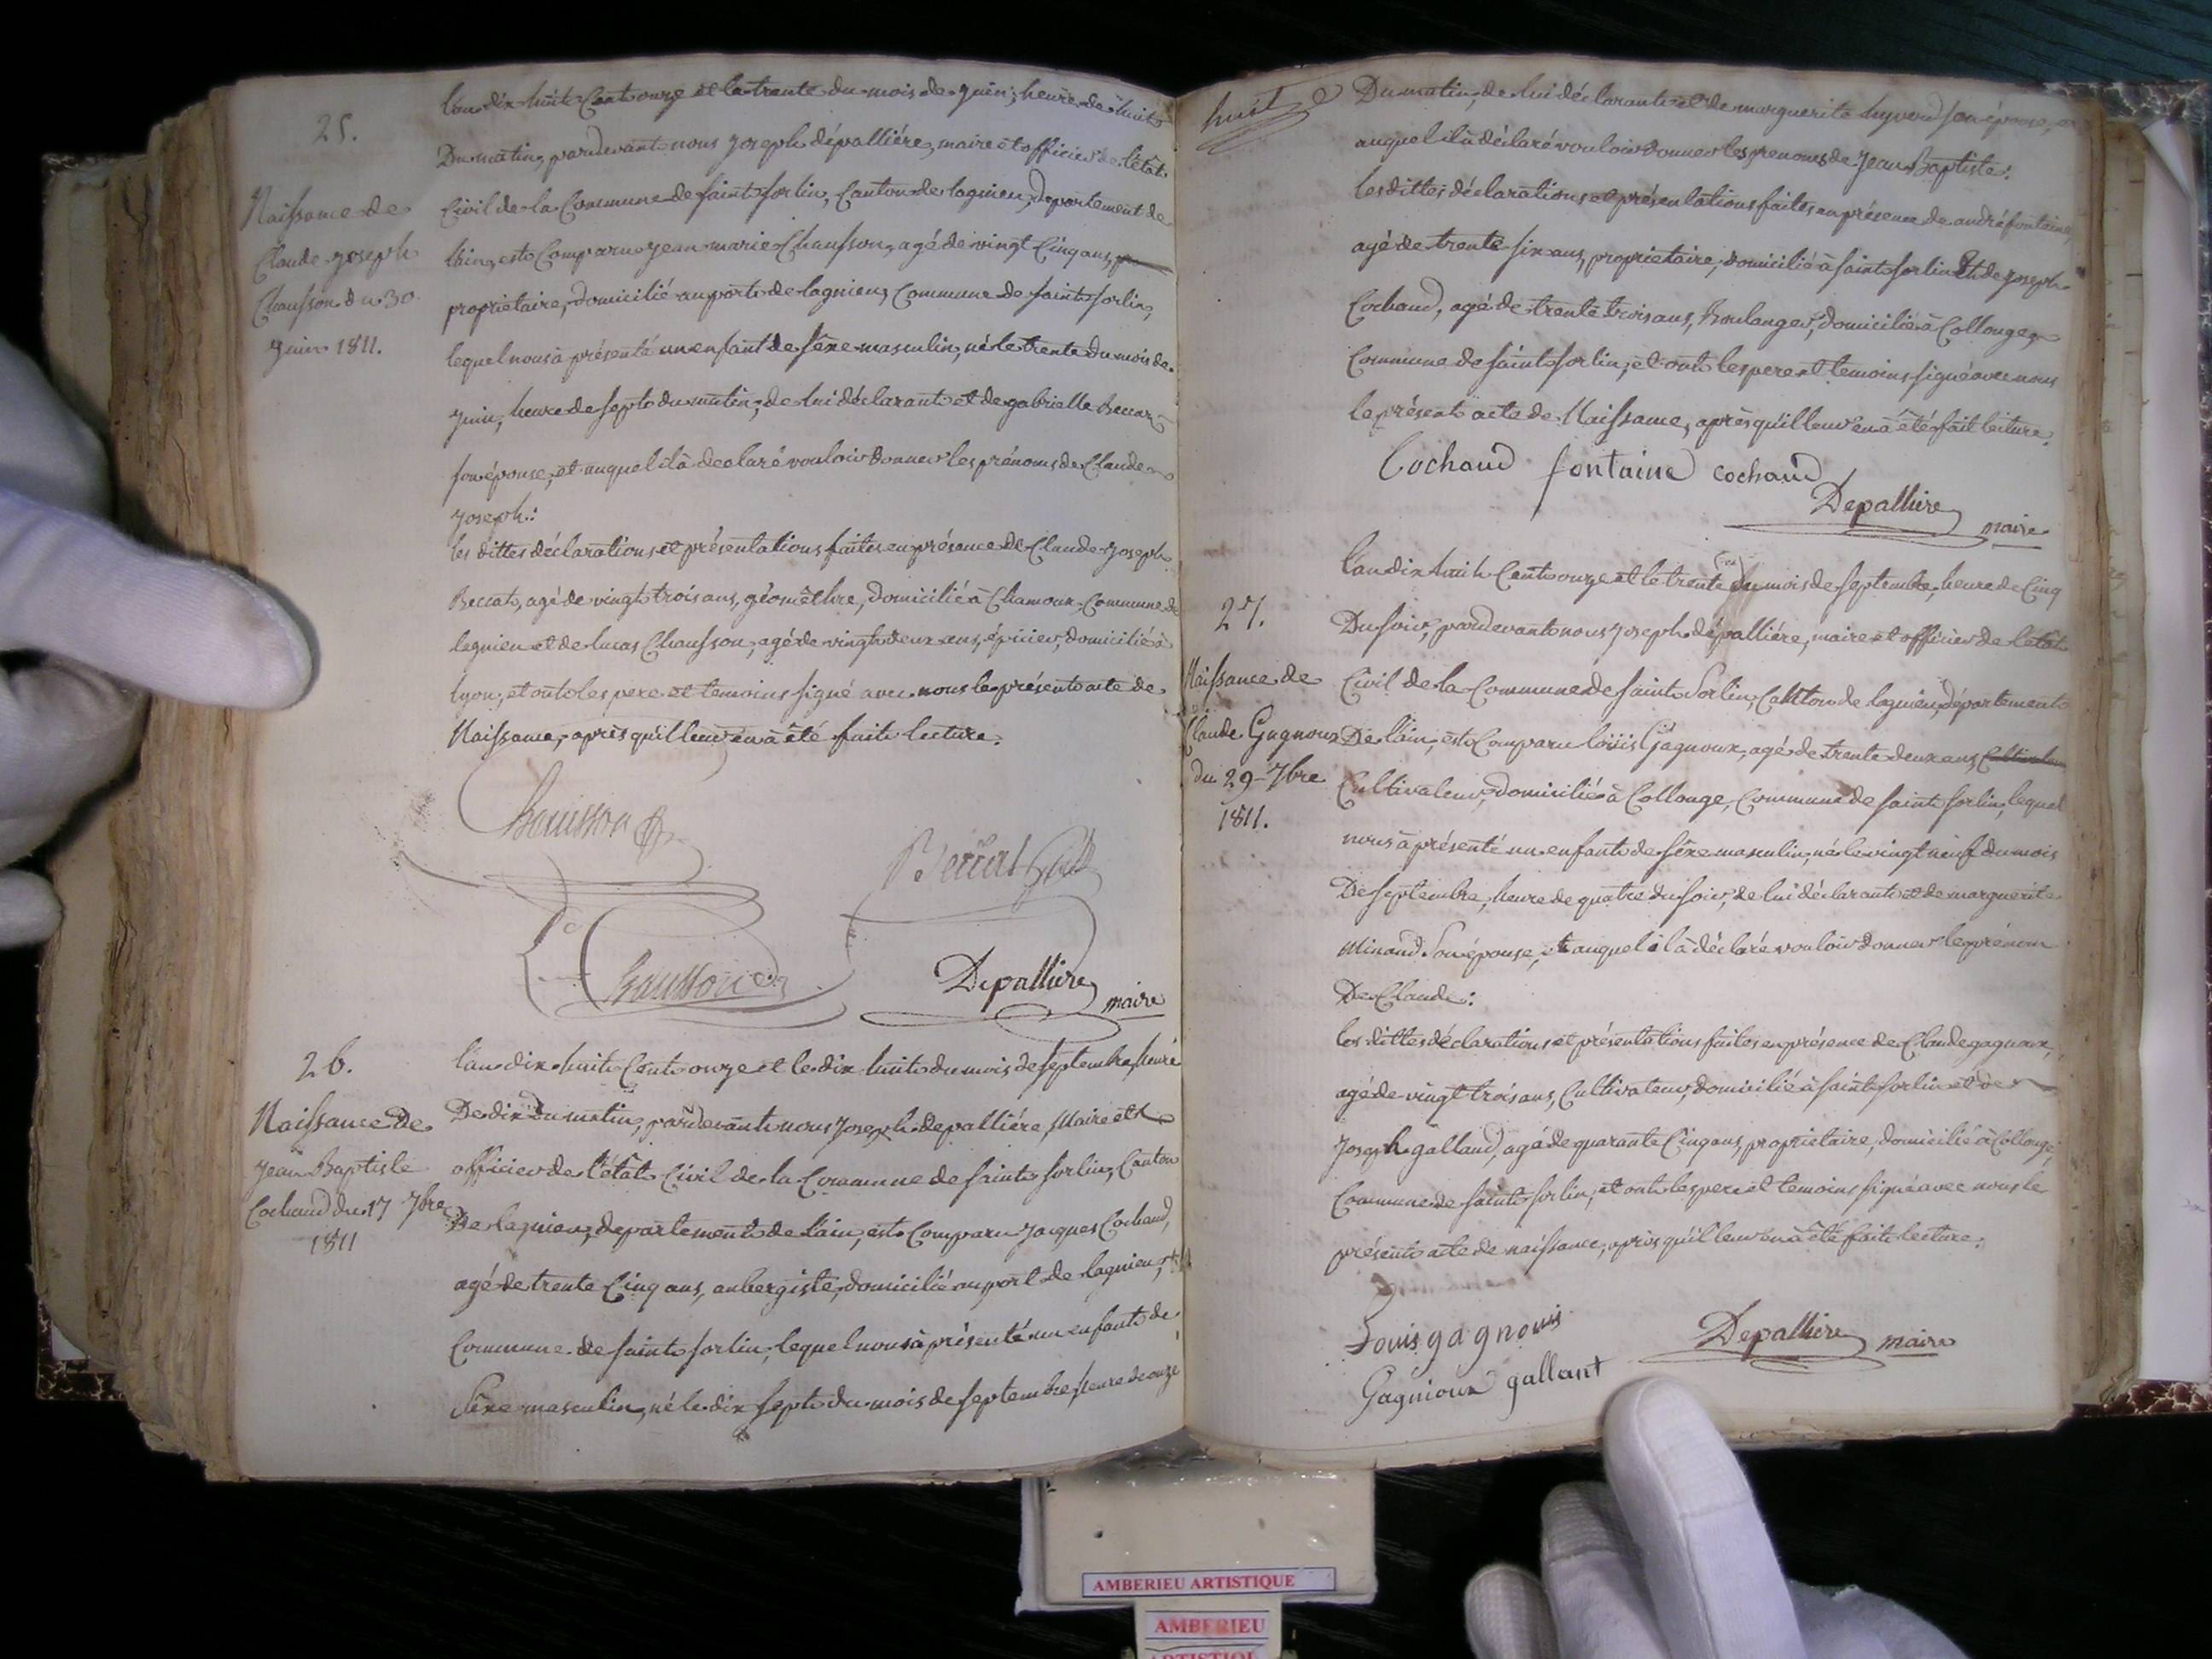 25.
Naissance de
Claude joseph
Chausson du 30
juin 1811.
l'an dix huit Cent onze et le trente du mois de juin, heure de huit
Du matin, pardevant nous joseph dépalliére, maire et officier de l'état
Civil de la Commune de saint sorlin, Canton de lagnieu, departement de
l'ain, est Comparu jean marie Chausson, agé de vingt Cinq ans,
propriétaire, domicilié au port de lagnieu, Commune de saint sorlin,
lequel nous à présenté un enfant de séxe masculin, né le trente du mois de
juin, heure de sept du matin, de lui déclarant et de gabrielle
son épouse, et auquel il à declaré vouloir donner les prénoms de Claude
joseph:
les dittes déclarations et présentations faites en présance de Claude joseph
Beccat, agé de vingt trois ans, géomêthre, domicilié à Chamoux Commune de
legnieu et de lucas Chausson, agé de vingt deux ans, épicier, domicilié à
lyon, et ont les pere et temoins signé avec nous le présent acte de
Naissance, après qu'il leur en à été faite lecture.
Chausson
Beccat
Chausson
Depalliere maire
26.
Naissance de
jean Baptiste
Cochaud du 17 7bre
1811
l'an dix huit Cent onze et le dix huit du mois de septembre, heure
De dix du matin, pardevant nous joseph depalliére, Maire et
officier de l'état Civil de la Commune de saint sorlin, Canton
De lagnieu, departement de l'ain, est Comparu jacques Cochaud,
agé de trente Cinq ans, aubergiste, domicilié au port de lagnieu,
Commune de saint sorlin, lequel nous à présenté un enfant de
Séxe masculin, né le dix sept du mois de septembre, heure de onze
huit
Du matin, de lui déclarant et de marguerite hyverd son épouse, et
auquel il à déclaré vouloir donner les prenoms de jean Baptiste:
les dittes déclarations et présentations faites en présence de andré fontaine,
agé de trente six ans, propriétaire, domicilié à saint sorlin Et de joseph
Cochaud, agé de trente trois ans, Boulanger, domicilié à Collonge,
Commune de saint sorlin; et ont les pere et temoins signé avec nous
le présent acte de Naissance, après qu'il leur en à été fait lecture.
Cochaud fontaine cochaud
Depalliere maire
27.
Naissance de
Claude Gagnoux
du 29 7bre
1811.
l'an dix huit Cent onze et le trente du mois de septembre, heure de Cinq
Du soir, pardevant nous joseph dépalliére, maire et officier de l'état
Civil de la Commune de saint Sorlin, Canton de lagnieu, département
De l'ain, est Comparu loüis Gagnoux, agé de trente deux ans Cultivateur
Cultivateur, domicilié à Collonge, Commune de saint sorlin, lequel
nous à présenté un enfant de séxe masculin, né le vingt neuf du mois
De septembre, heure de quatre du soir, de lui déclarant et de marguerite
Minand son épouse, et auquel il à déclaré vouloir donner le prénom
De Claude:
les dittes déclarations et présentations faites en présence de Claude gagnoux,
agé de vingt trois ans, Cultivateur, domicilié à saint sorlin et de
Joseph galland, agé de quarante Cinq ans, propriétaire, domicilié à Collonge,
Commune de saint sorlin, et ont les pere et temoins signé avec nous le
présent acte de naissance, après qu'il leur en à été faite lecture.
Louis gagnouis
Depalliere maire
Gagnioux gallant
AMBERIEU ARTISTIQUE
AMBERIEU
ARTISTIQUE